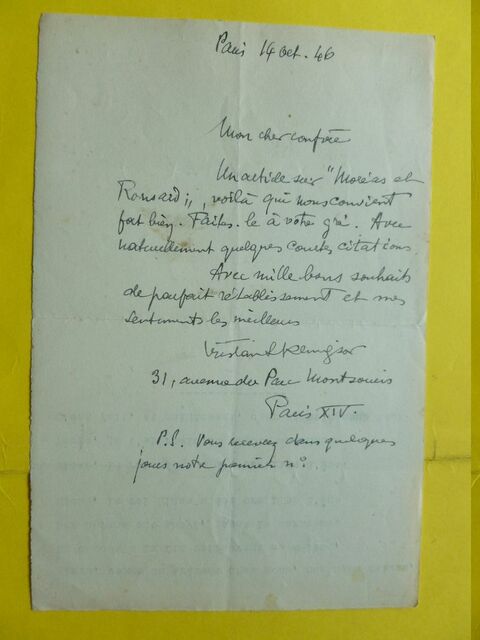 Paris 14 Oct. 46
Mon cher confrère
Un article sur "Moréas et
Ronsard", voilà qui nous convient
fort bien. Faites-le à votre gré. Avec
naturellement quelques courtes citations
Avec mille bons souhaits
de parfait rétablissement et mes
sentiments les meilleurs
Tristan Klingsor
31, avenue du Parc Montsouris
Paris XIV.
P.S. Vous recevrez dans quelques
jours notre premier n°.